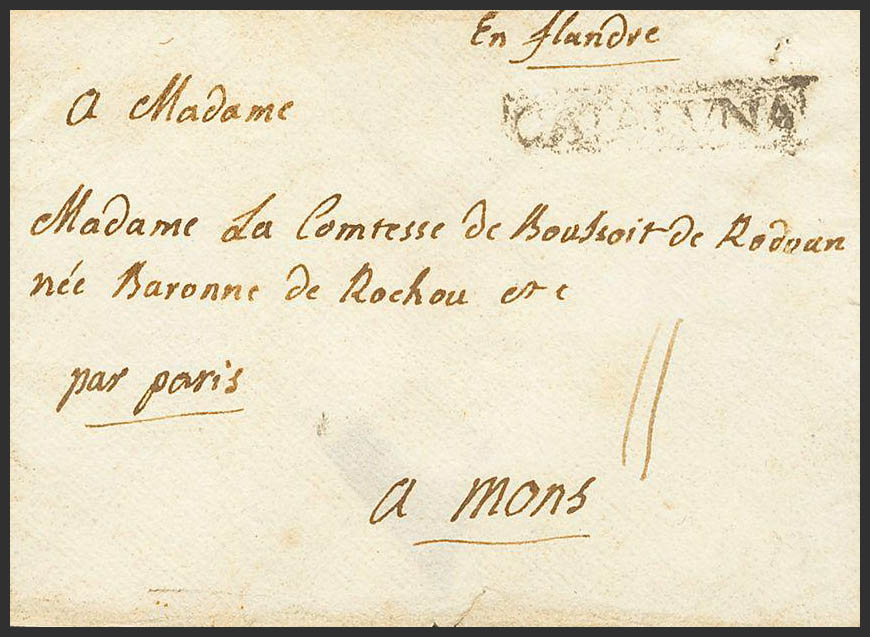 En flandre
CATALUNA
A Madame
Madame La Comtesse de Boussoit de Rodoan
née Baronne de Rochou etc
par paris
a mons